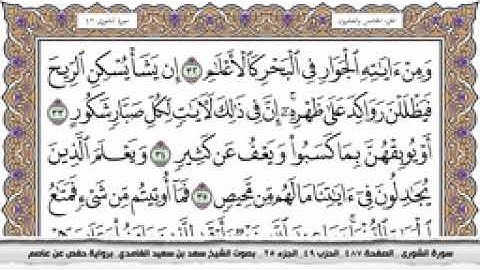 الجزء الخامس والعشرون
سورة الشورى ٤٢
وَمِنْ ءَايَٰتِهِ ٱلْجَوَارِ فِى ٱلْبَحْرِ كَٱلْأَعْلَٰمِ ٣٢ إِن يَشَأْ يُسْكِنِ ٱلرِّيحَ
فَيَظْلَلْنَ رَوَاكِدَ عَلَىٰ ظَهْرِهِۦٓ إِنَّ فِى ذَٰلِكَ لَءَايَٰتٍ لِّكُلِّ صَبَّارٍ شَكُورٍ ٣٣
أَوْ يُوبِقْهُنَّ بِمَا كَسَبُوا۟ وَيَعْفُ عَن كَثِيرٍ ٣٤ وَيَعْلَمَ ٱلَّذِينَ
يُجَٰدِلُونَ فِىٓ ءَايَٰتِنَا مَا لَهُم مِّن مَّحِيصٍ ٣٥ فَمَآ أُوتِيتُم مِّن شَىْءٍ فَمَتَٰعُ
سورة الشورى . الصفحة ٤٨٧ . الحزب ٤٩ . الجزء ٢٥ . بصوت الشيخ سعد بن سعيد الغامدي . برواية حفص عن عاصم